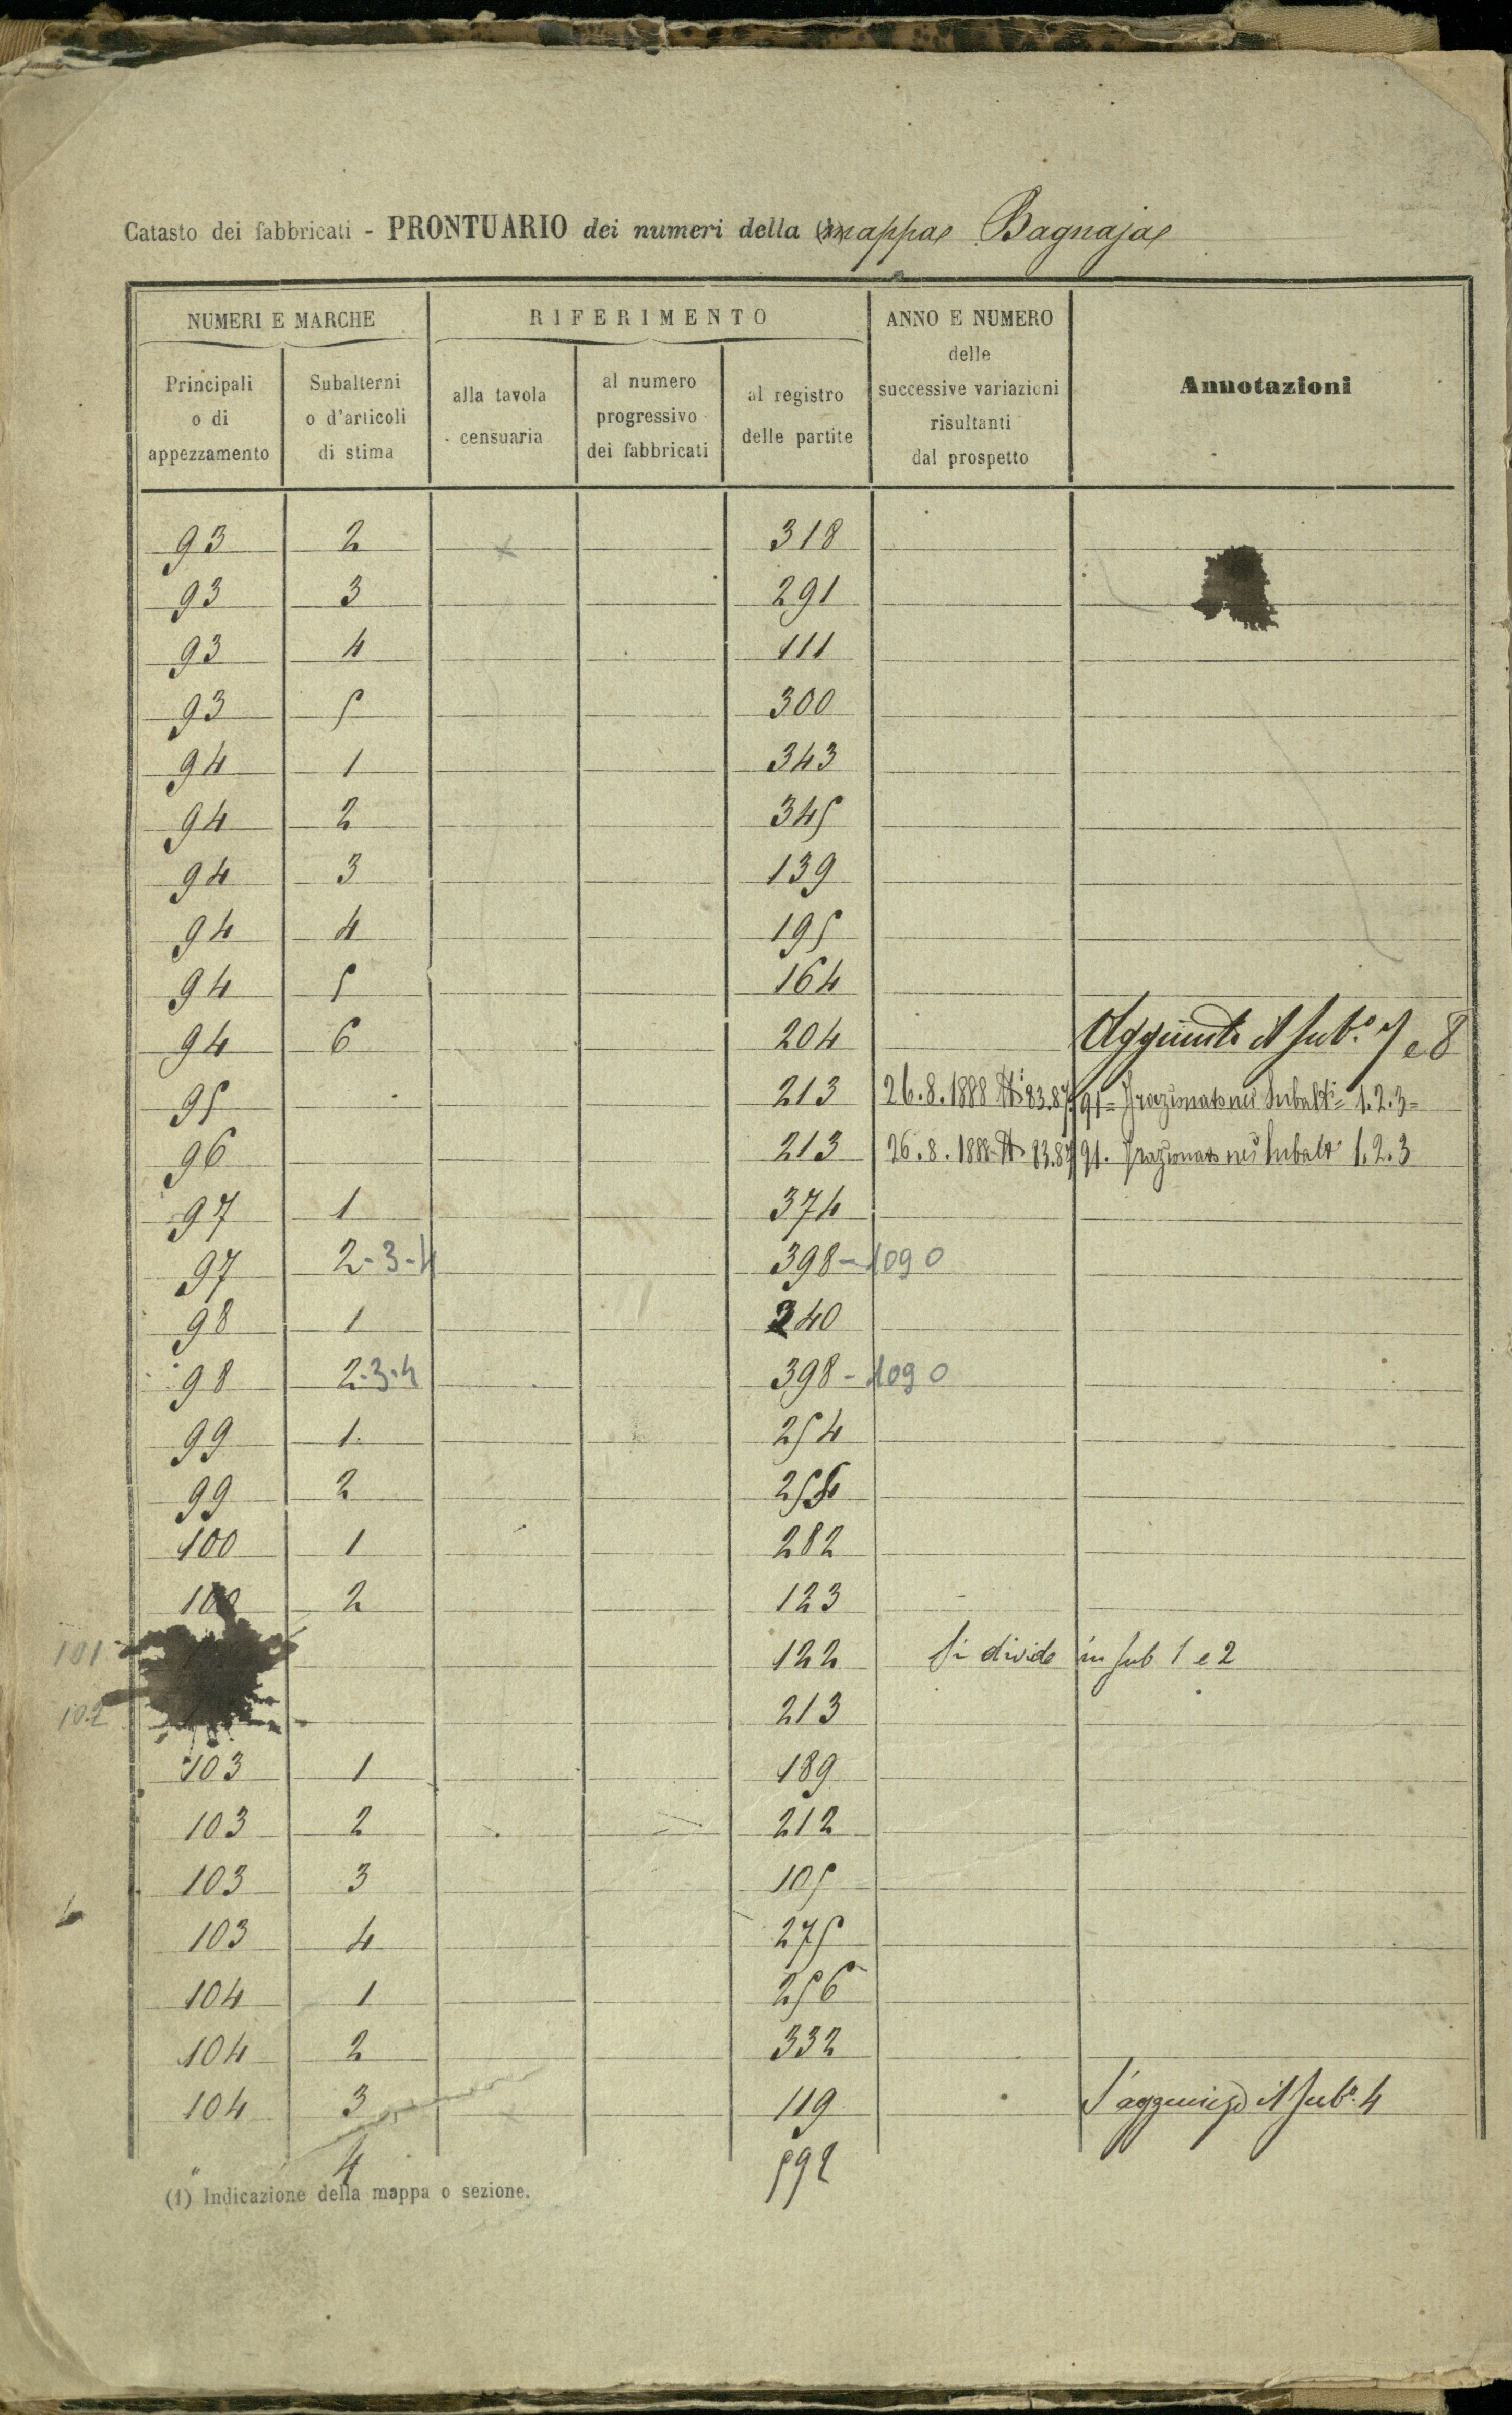 Catasto dei fabbricati - PRONTUARIO dei numeri della mappa Bagnaja
NUMERI E MARCHE RIFERIMENTO ANNO E NUMERO delle successive variazioni risultanti dal prospetto Annotazioni
Principali o di appezzamento Subalterni o d'articoli di stima alla tavola censuaria al numero progressivo dei fabbricati al registro delle partite
93 2 318
93 3 291
93 4 111
93 5 300
94 1 343
94 2 345
94 3 139
94 4 195
94 5 164
94 6 204 Aggiunto il sub.° 7 e 8
95 213 26.8.1888 83.87 91= Frazionato nei Subalt = 1.2.3=
96 213 26.8.1888 83.87 91. Frazionato nei Subalt 1.2.3
97 1 374
97 2-3-4 398-1090
98 1 240
98 2-3-4 398-1090
99 1. 254
99 2
100 1 282
100 2 123
101 122 Si divide in sub 1 e 2
102 213
103 1 189
103 2 212
103 3 105
103 4 275
104 1 256
104 2 332
104 3 119 S'aggiunge il sub.° 4
" 4 592
(1) Indicazione della mappa o sezione.